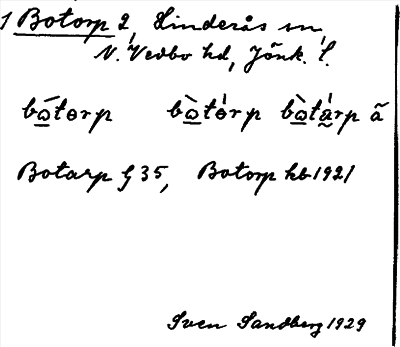 1 Botorp 2, Linderås sn
N. Vedbo hd, Jönk. l.
bō̲tɵrp bò̲tɵ́rp bò̲tá̲rp ã
Botarp G 35, Botorp kb 1921
Sven Sandberg 1929